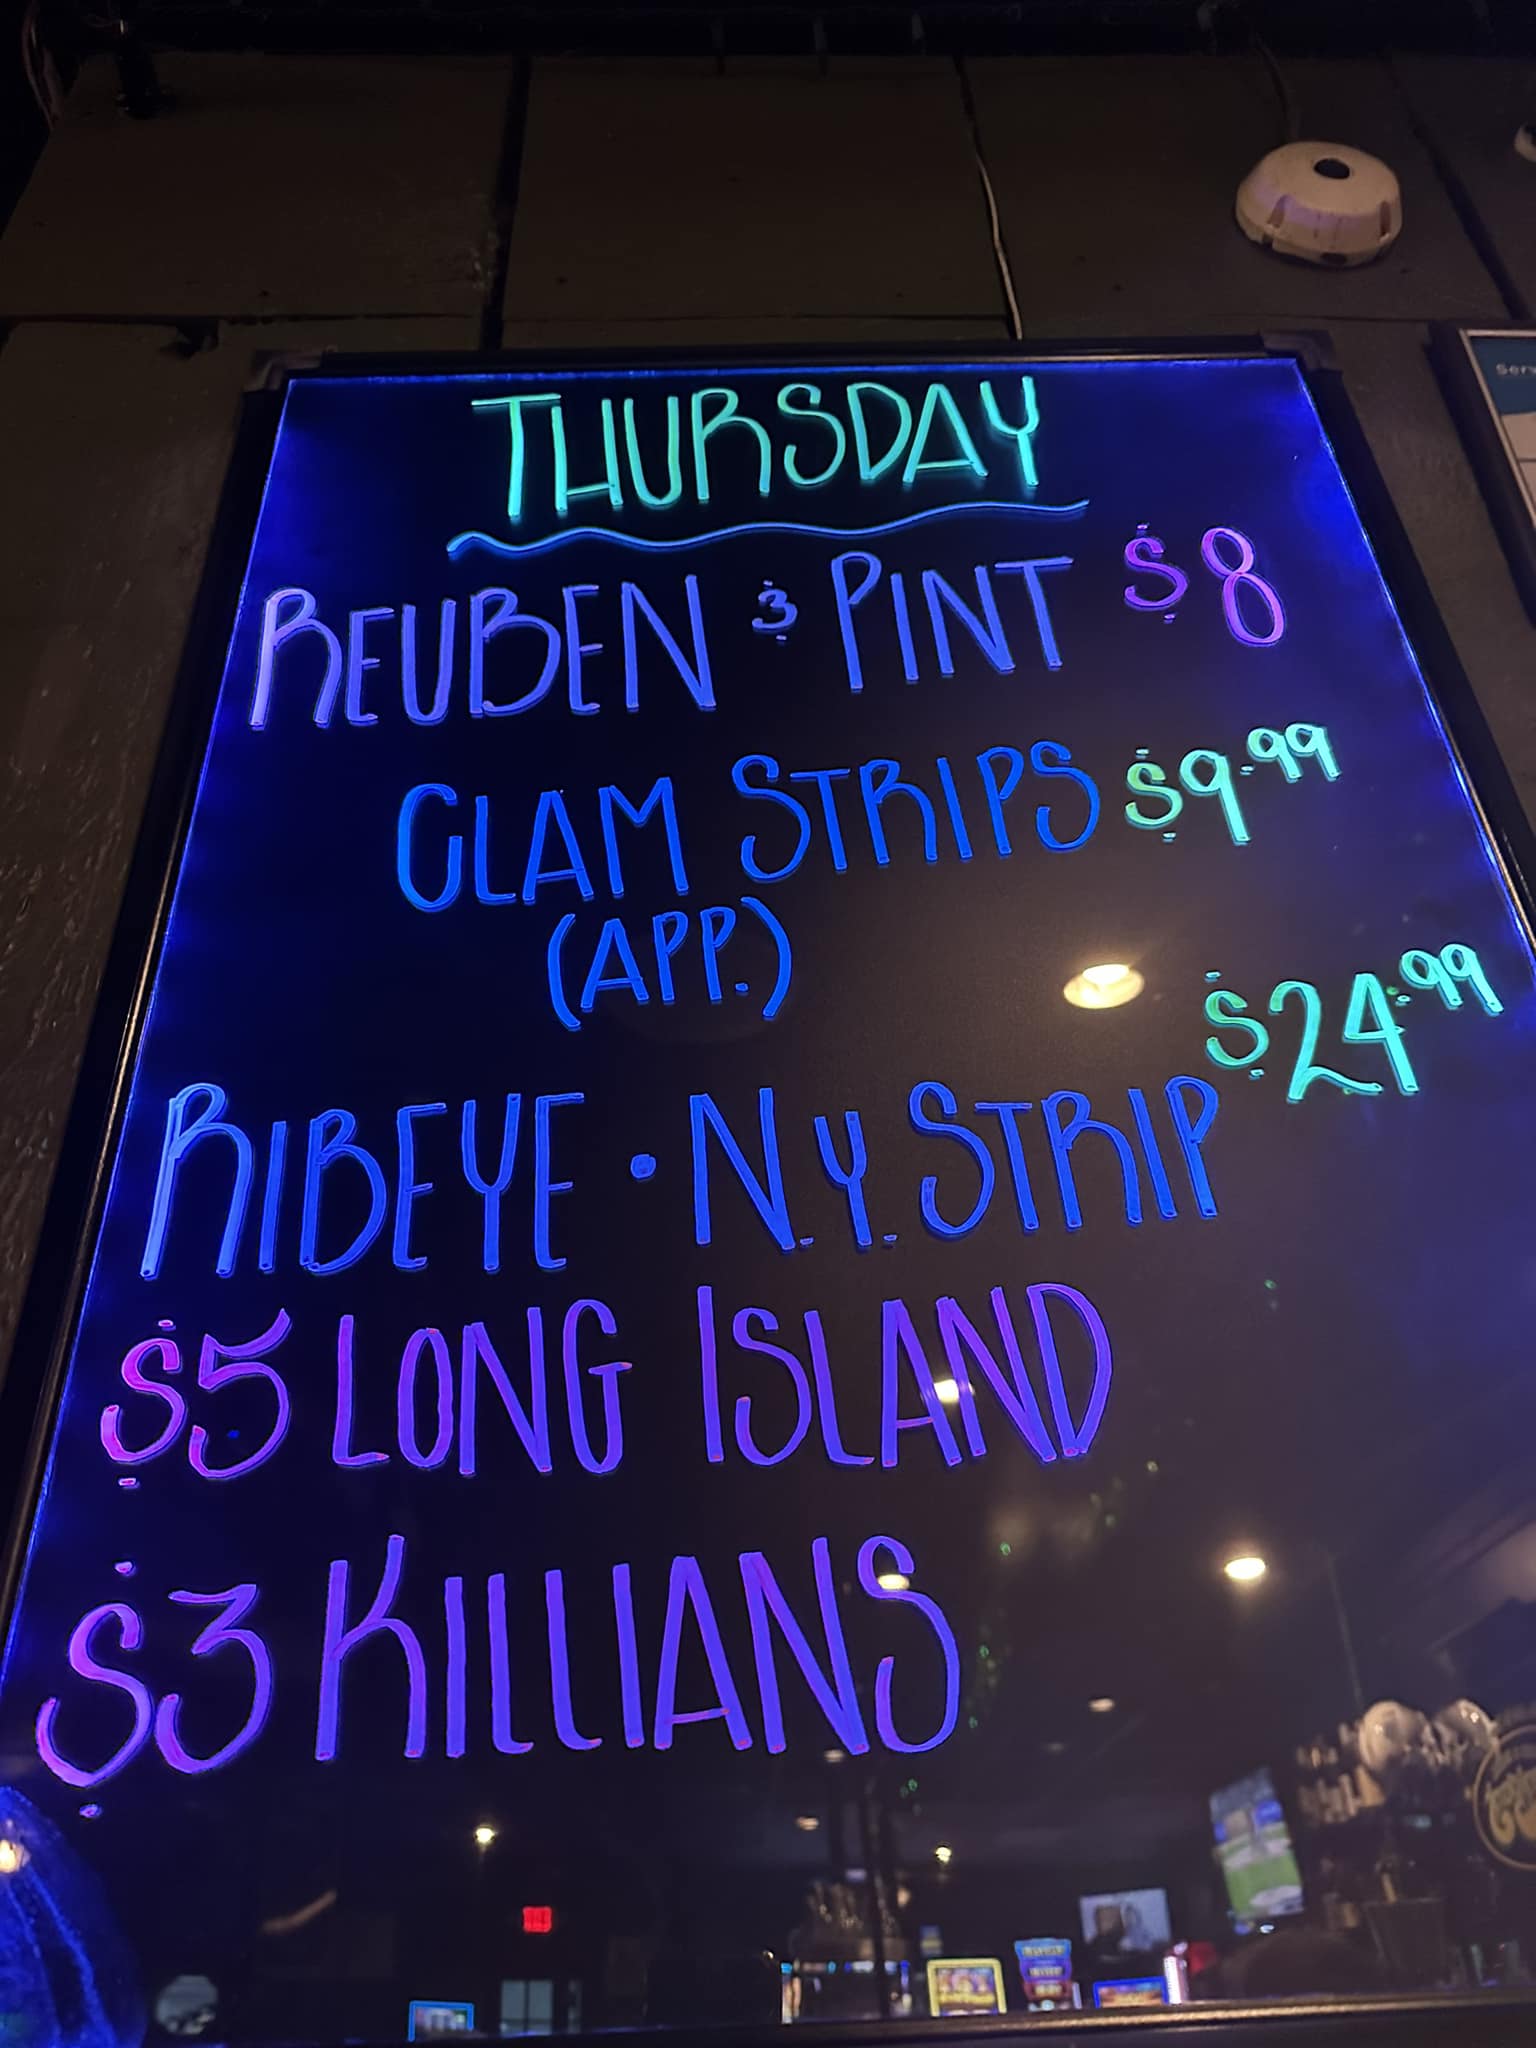 THURSDAY
REUBEN & PINT $8
CLAM STRIPS $9.99
(APP.)
$24.99
RIBEYE • N.Y. STRIP
$5 LONG ISLAND
$3 KILLIANS
Serv